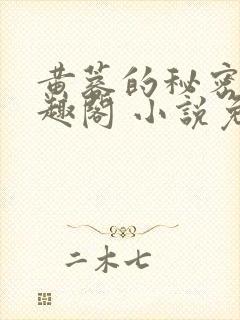 黄墓的秘密
趣阁 小說免
二木七